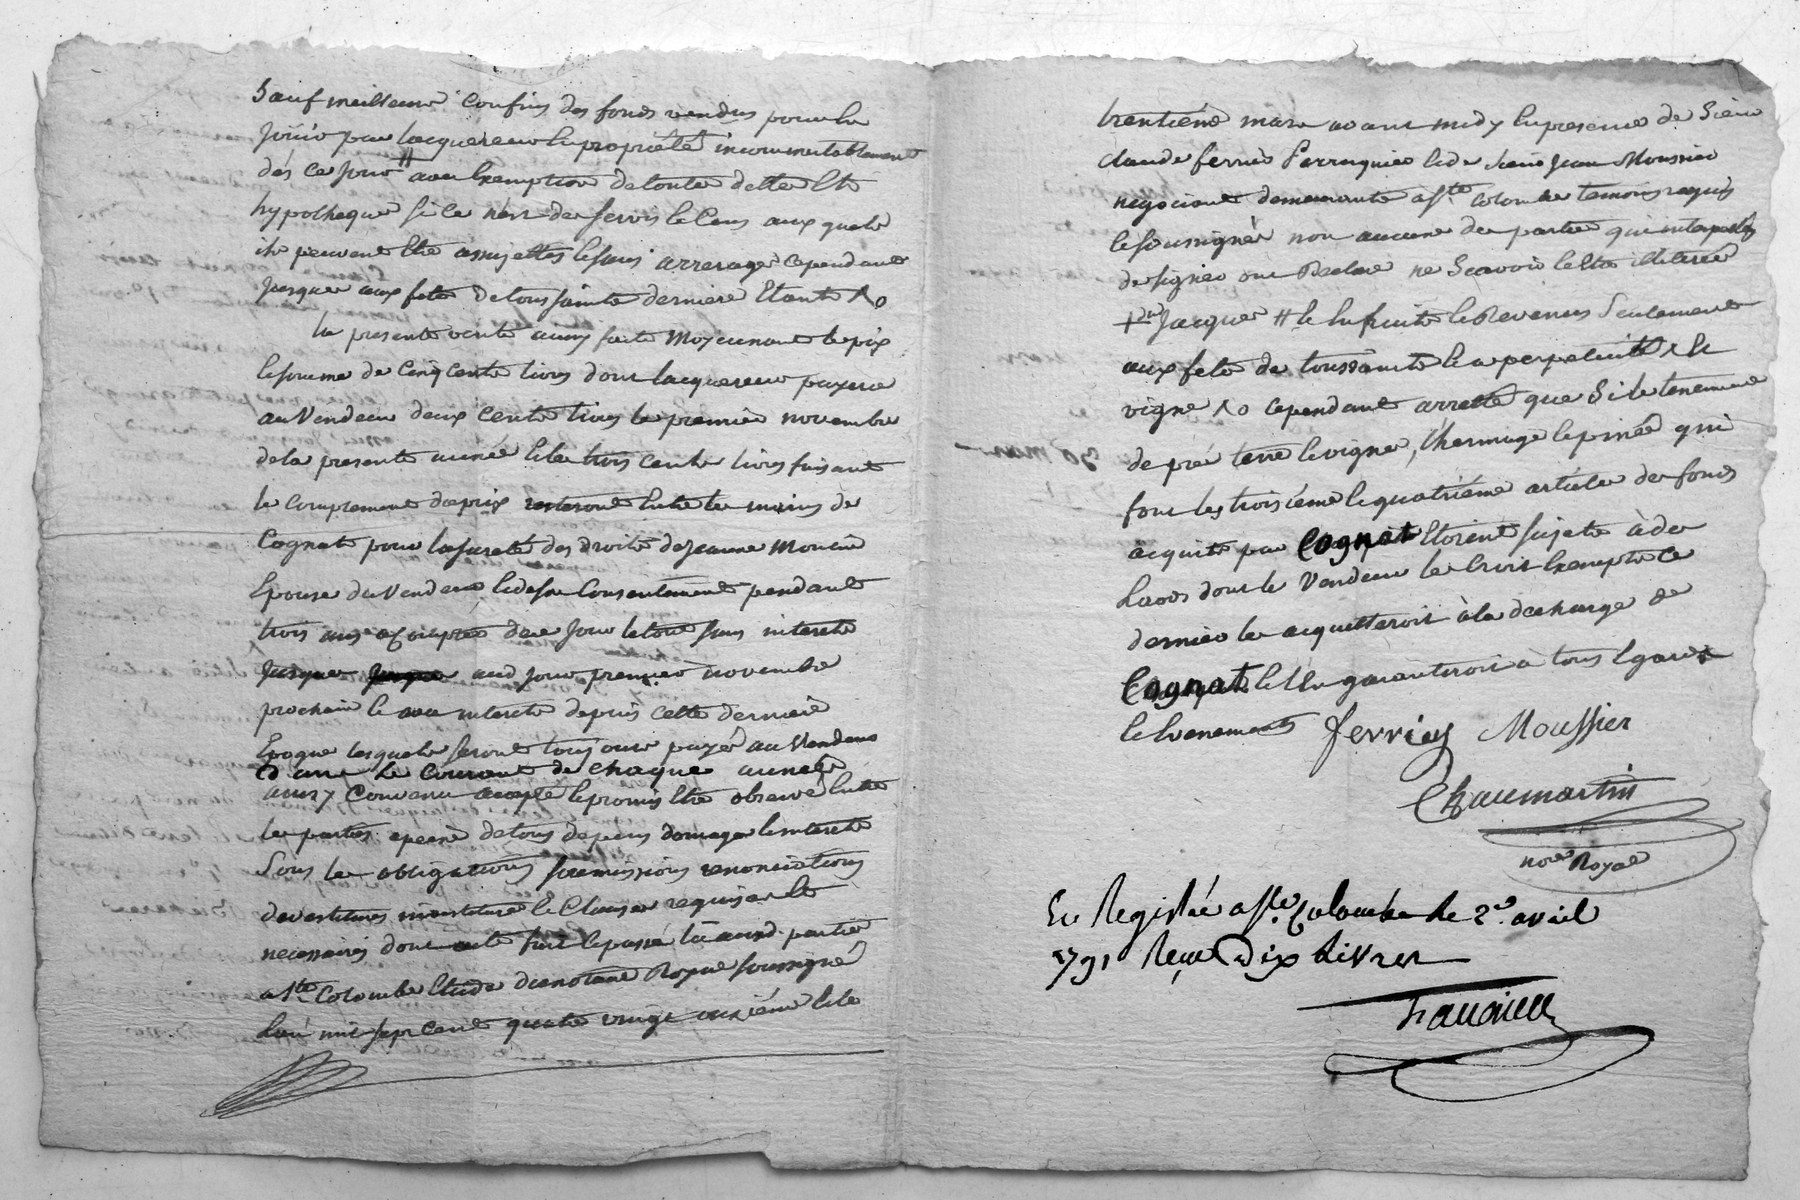 Sauf meilleurs confins des fonds vendus pour la
jouir par lacquereur en propriété incommutablement
dès ce jour # avec Exemption de toute dette Et
hypotheque si ce n'est de servis le Cens aux quels
ils peuvent Etre assujettes le sans arrerages cependant
jusques aux fete de toussainte derniere Etant No
La presente vente ainsy faite moyennant le prix
le somme de Cinq cents livres dont lacquereur payera
au Vendeur deux cents livres le premier novembre
de la presente année Et les trois cents livres faisant
le complement du prix resteront Entre les mains de
Cognat pour la sureté des droits de jeanne Moucin
Epouse du Vendeur le de son Consentement pendant
trois ans a Compter de ce jour le tout sans interets
jusques aud jour premier novembre
prochain le avec interets depuis cette derniere
Epoque lesquels seront toujours payés au Vendeur
dans le courant de chaque année
ainsy convenu accepté le promis Etre observé Entre
les parties a peine de tous depens domages le interets
Sous les obligations soumissions renonciations
devestitures investitures le Clauses requises Et
necessaires dont acte fait le passé lû auxd. parties
a Ste. Colombe Etude du notaire Royal soussigné
L'an mil sept cent quatre vingt onzième Et le
trentième mars avant midy En presence de Sieur
claude ferrier Perruquier le de Sieur jean Moussier
negociant demeurants a Ste. Colombe temoins requis
le soussignés non aucune des parties qui interpellés
de signer ont Declaré ne Scavoir le Etre illiterés
Jacques # le En fruits le Revenus Seulement
aux fete de toussainte le a perpetuité Et
vigne No cependant arretté que Si le tenement
de pré terre le vigne, l'hermuge le pinée qui
font les troisième le quatrième articles des fonds
acquits par Cognat Etoient sujets à des
Laods dont le Vendeur les Croit Exempts Ce
dernier les acquitteroit à la decharge de
Cognat le l'En garantiroit à tous Egards
le Evenements ferrier Moussier
Chaumartin
nore Royal
En Registré a Ste. Colombe le 2e. avril
1791 Reçu Dix livres